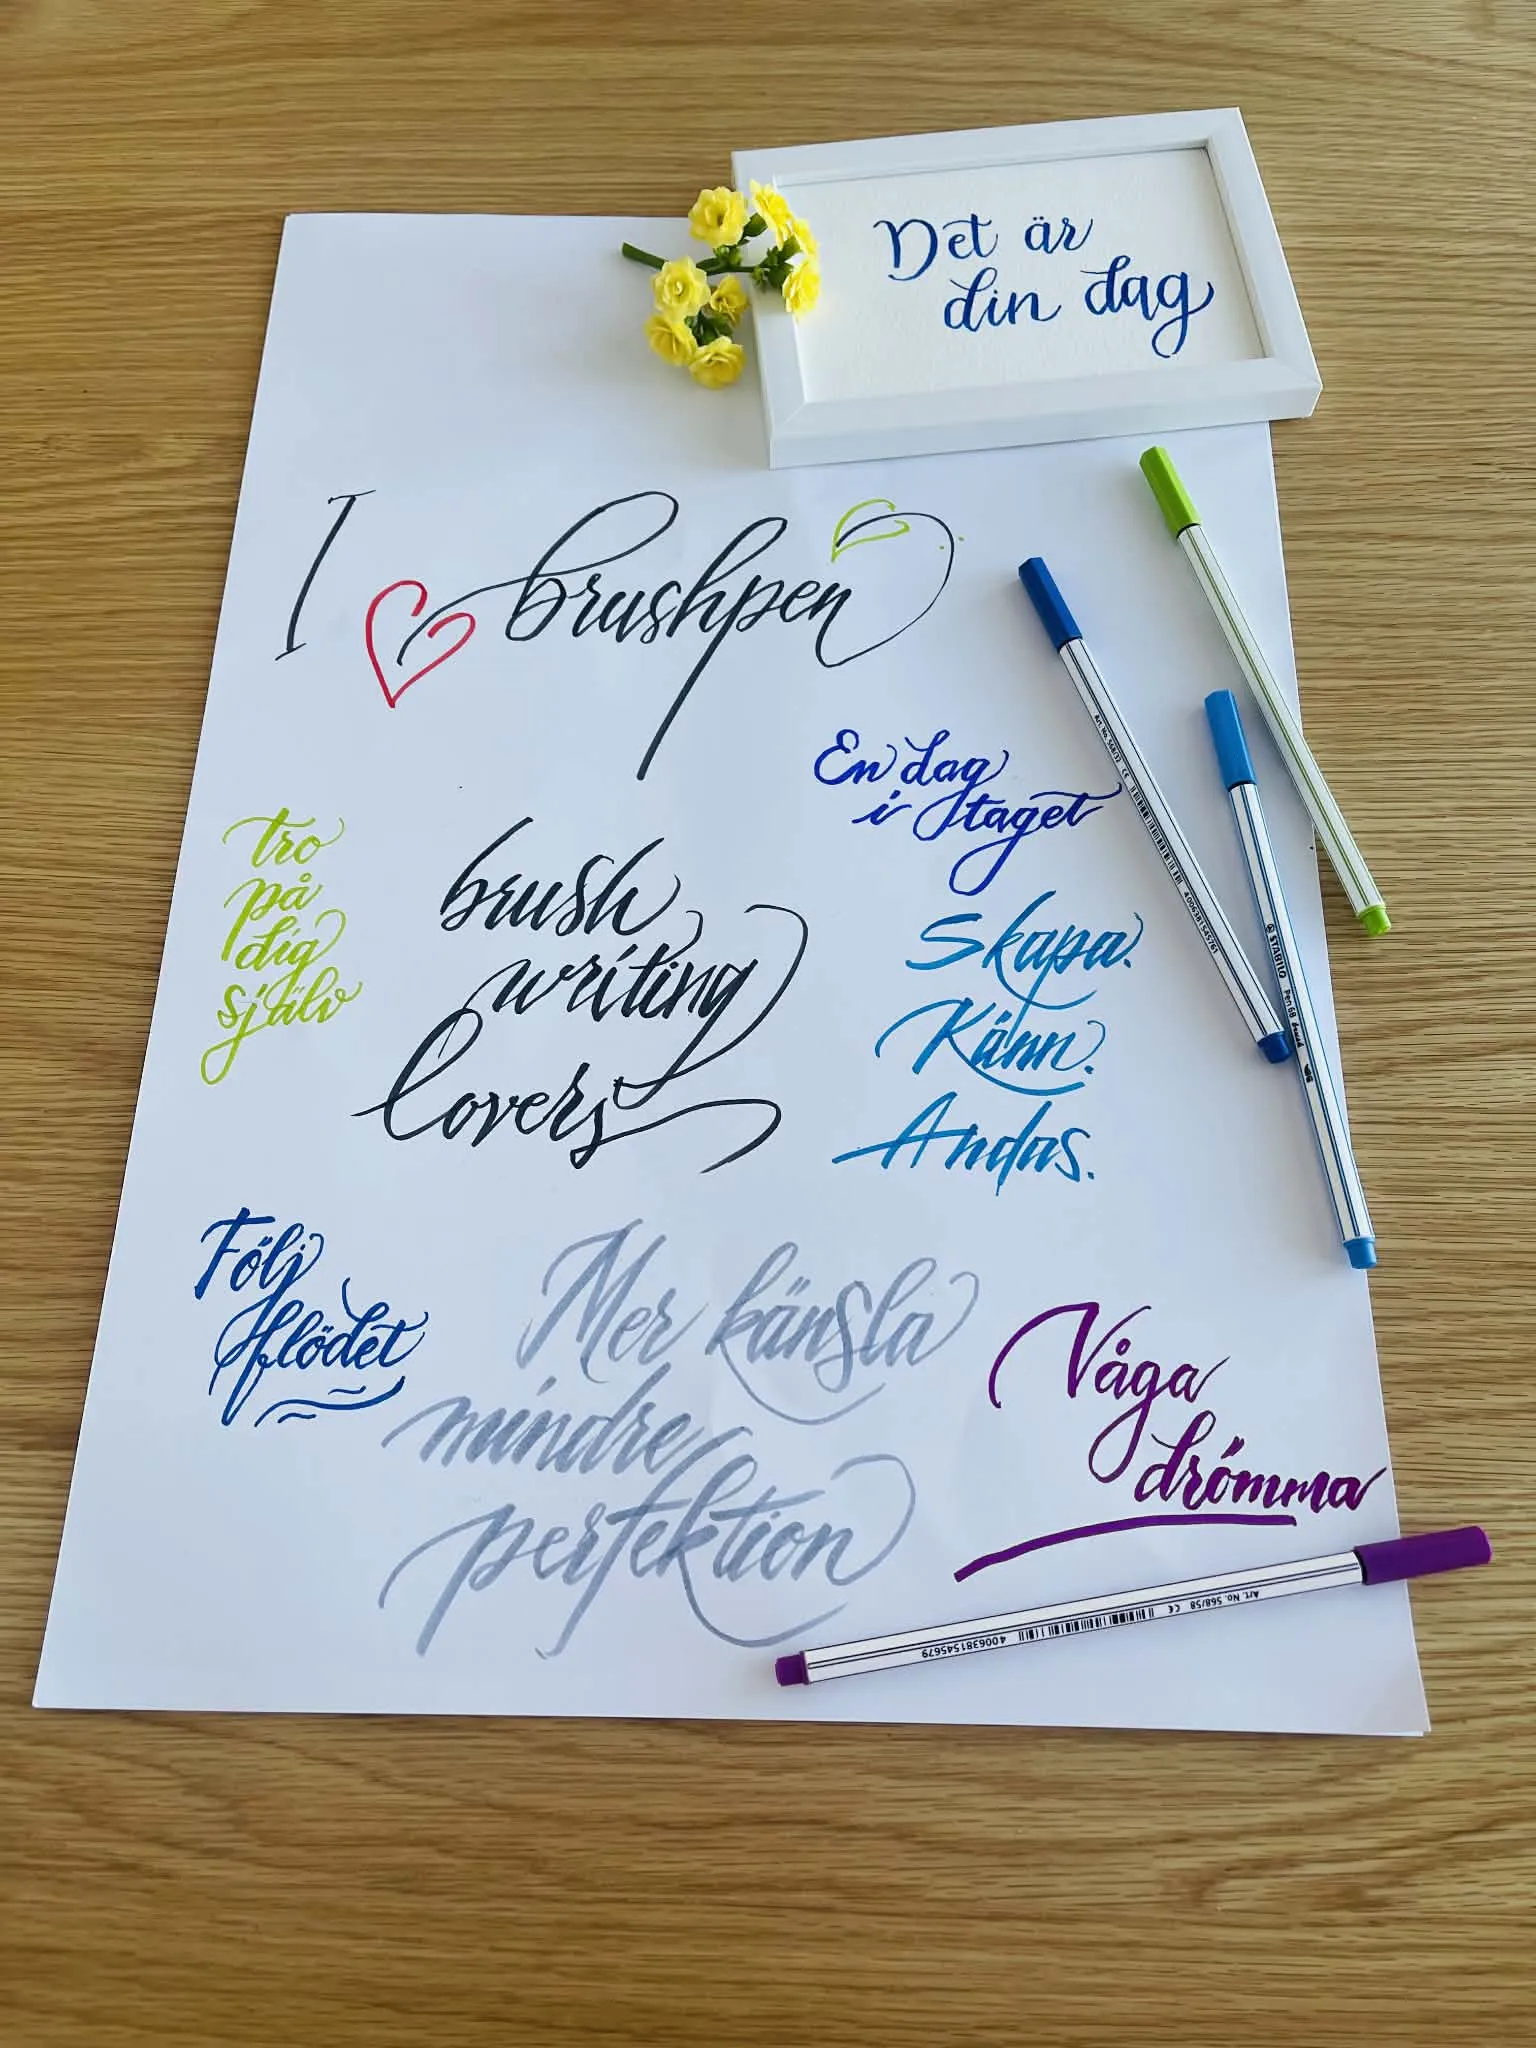 Det är
din dag
I brushpen
En dag
i taget
tro
på
dig
själv
brush
writing
lovers
Skapa.
Känn.
Andas.
Följ
flödet
Mer känsla
mindre
perfektion
Våga
drömma
Art. No. 568/32 CE 4006381545761
STABILO Pen 68 brush
Art. No. 568/58 CE 4006381545679